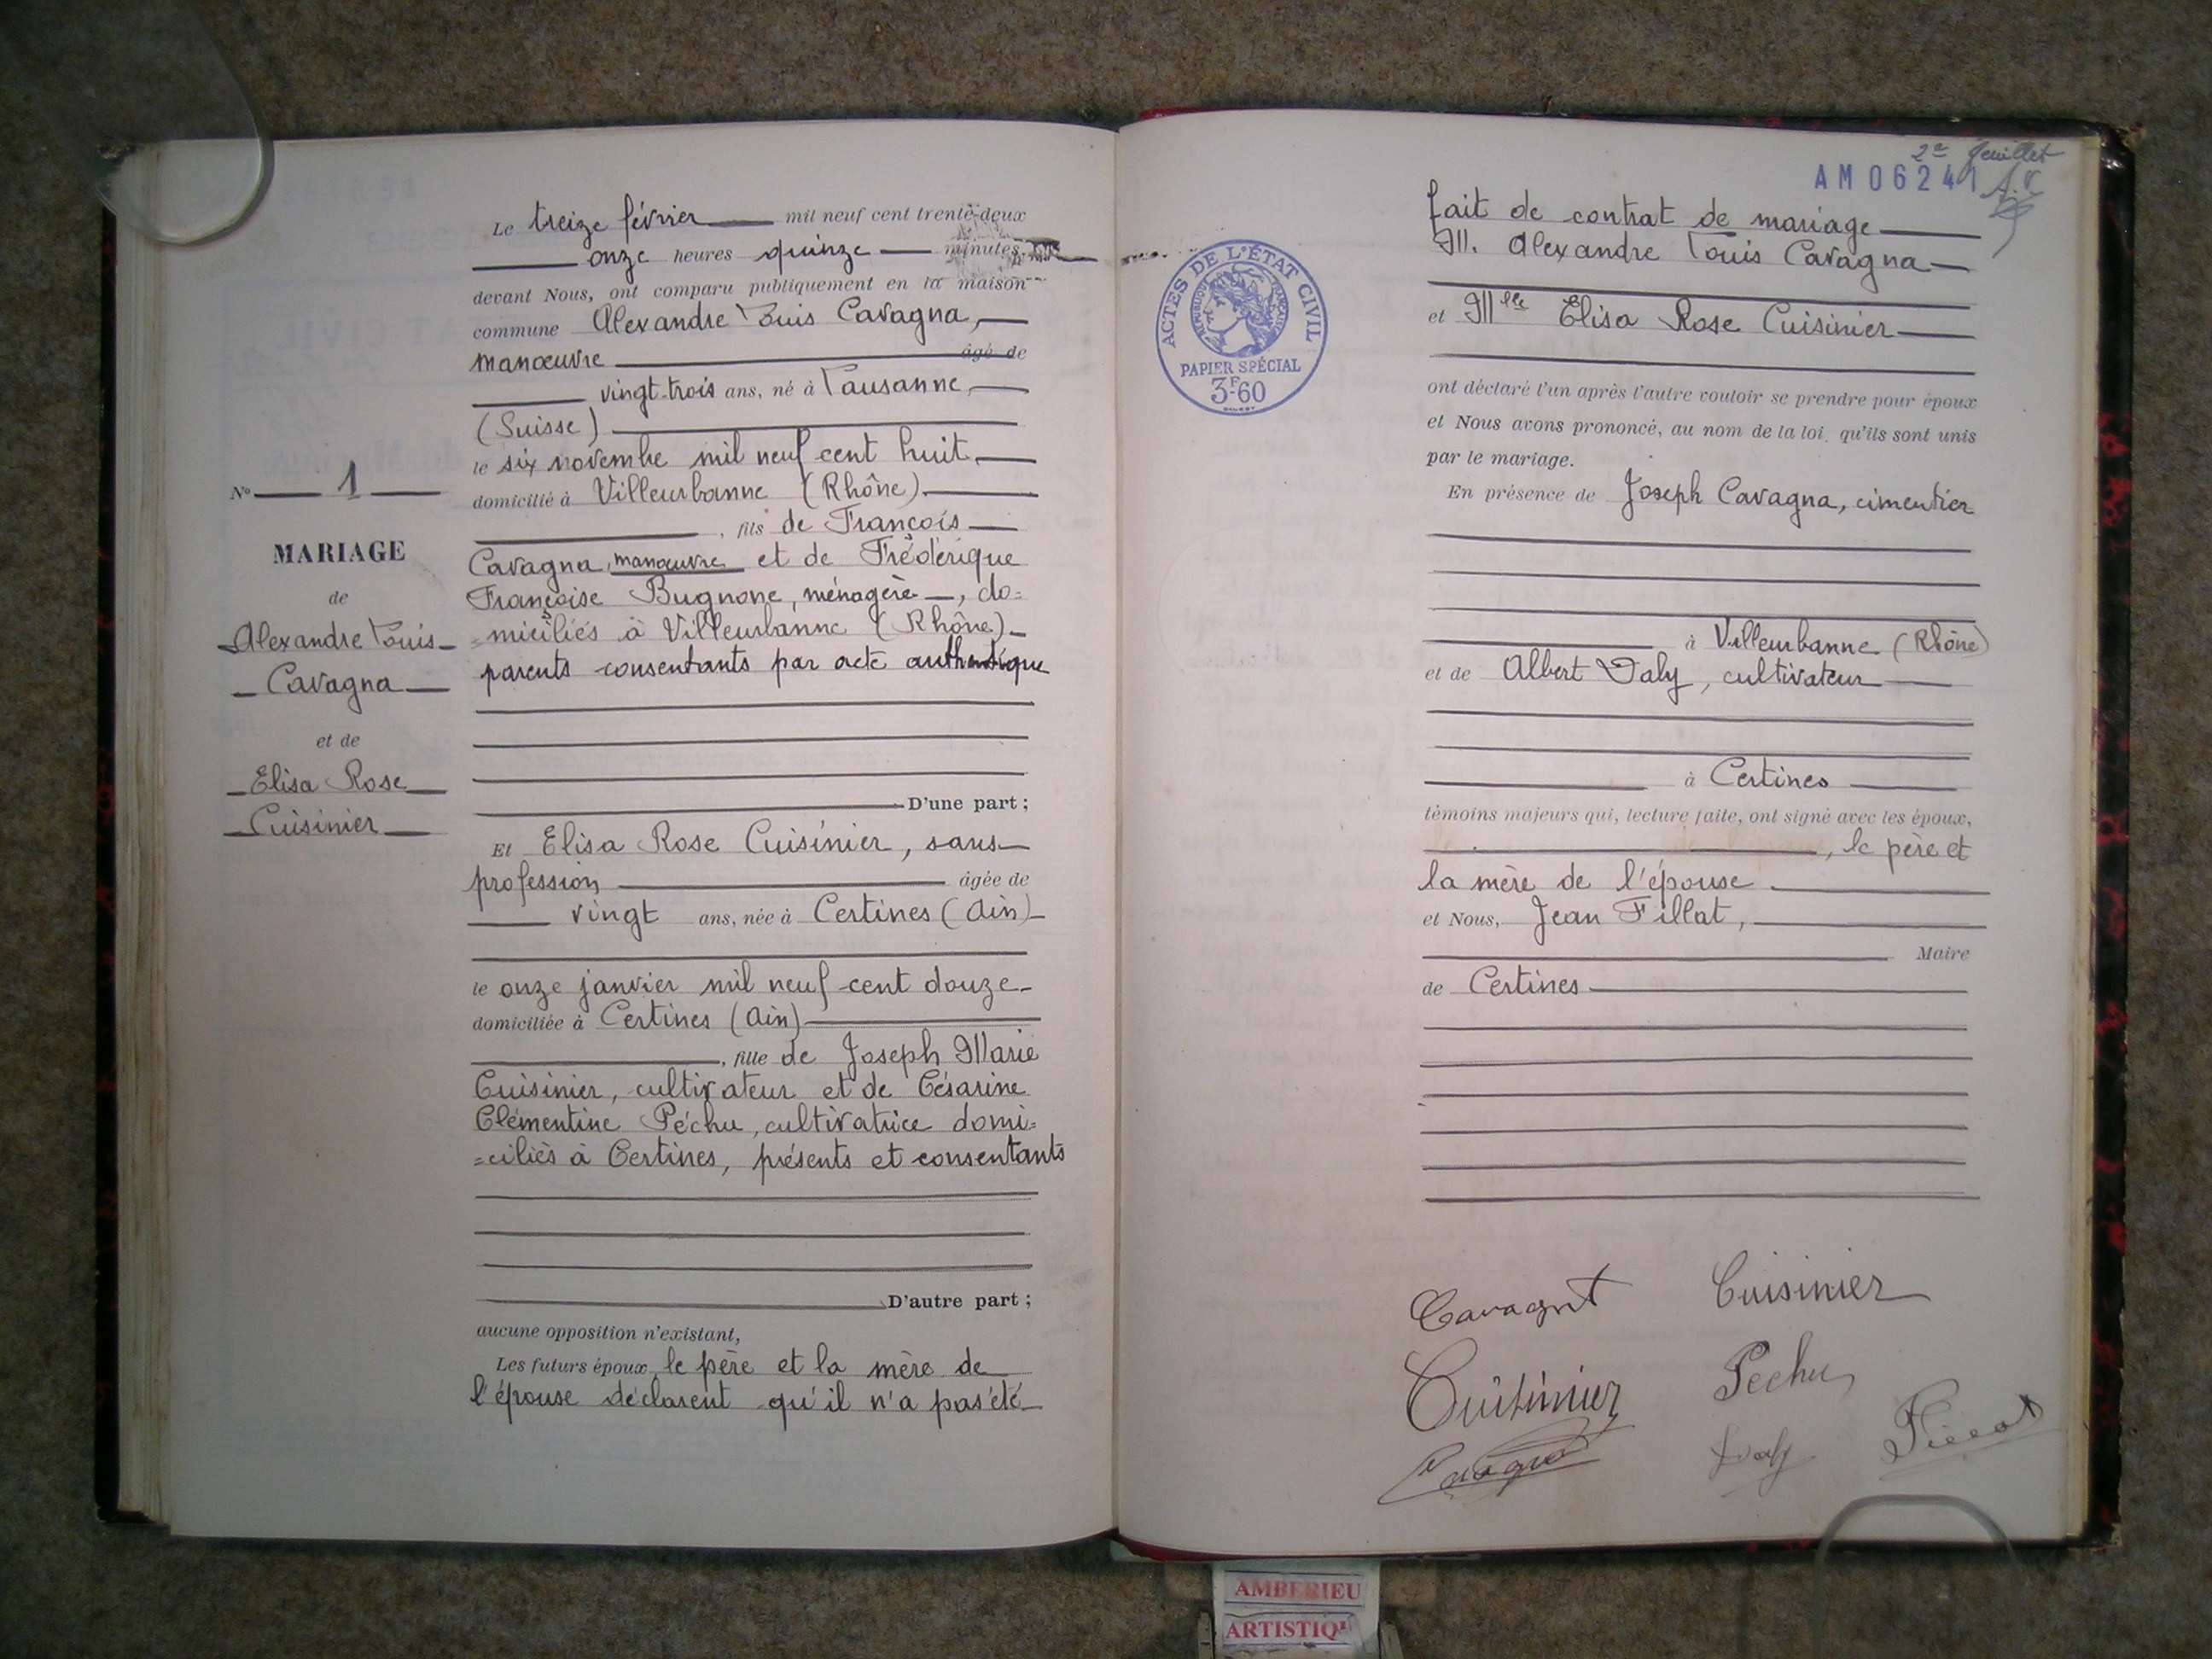 Le treize février mil neuf cent trente-deux
onze heures quinze minutes
devant Nous, ont comparu publiquement en la maison
commune Alexandre Louis Cavagna,
manœuvre âgé de
vingt-trois ans, né à Lausanne,
(Suisse)
le six novembre mil neuf cent huit,
domicilié à Villeurbanne (Rhône)
, fils de François
Cavagna, manœuvre et de Frédérique
Françoise Bugnone, ménagère, do=
=miciliés à Villeurbanne (Rhône)
parents consentants par acte authentique
D'une part ;
Et Elisa Rose Cuisinier, sans
profession âgée de
vingt ans, née à Certines (Ain)
le onze janvier mil neuf cent douze
domiciliée à Certines (Ain)
, fille de Joseph Marie
Cuisinier, cultivateur et de Césarine
Clémentine Péchu, cultivatrice domi=
=ciliés à Certines, présents et consentants
D'autre part ;
aucune opposition n'existant,
Les futurs époux, le père et la mère de
l'épouse déclarent qu'il n'a pas été
N° 1
MARIAGE
de
Alexandre Louis
Cavagna
et de
Elisa Rose
Cuisinier
2e feuillet
AM06241
ACTES DE L'ÉTAT CIVIL
RÉPUBLIQUE FRANÇAISE
PAPIER SPÉCIAL
3F60
fait de contrat de mariage
M. Alexandre Louis Cavagna
et Mlle Elisa Rose Cuisinier
ont déclaré l'un après l'autre vouloir se prendre pour époux
et Nous avons prononcé, au nom de la loi, qu'ils sont unis
par le mariage.
En présence de Joseph Cavagna, cimentier
à Villeurbanne (Rhône)
et de Albert Daly, cultivateur
à Certines
témoins majeurs qui, lecture faite, ont signé avec les époux,
, le père et
la mère de l'épouse
et Nous, Jean Fillat,
Maire
de Certines
Cuisinier
Cuisinier
Pechu
Daly
Fillat
AMBERIEU
ARTISTIQU